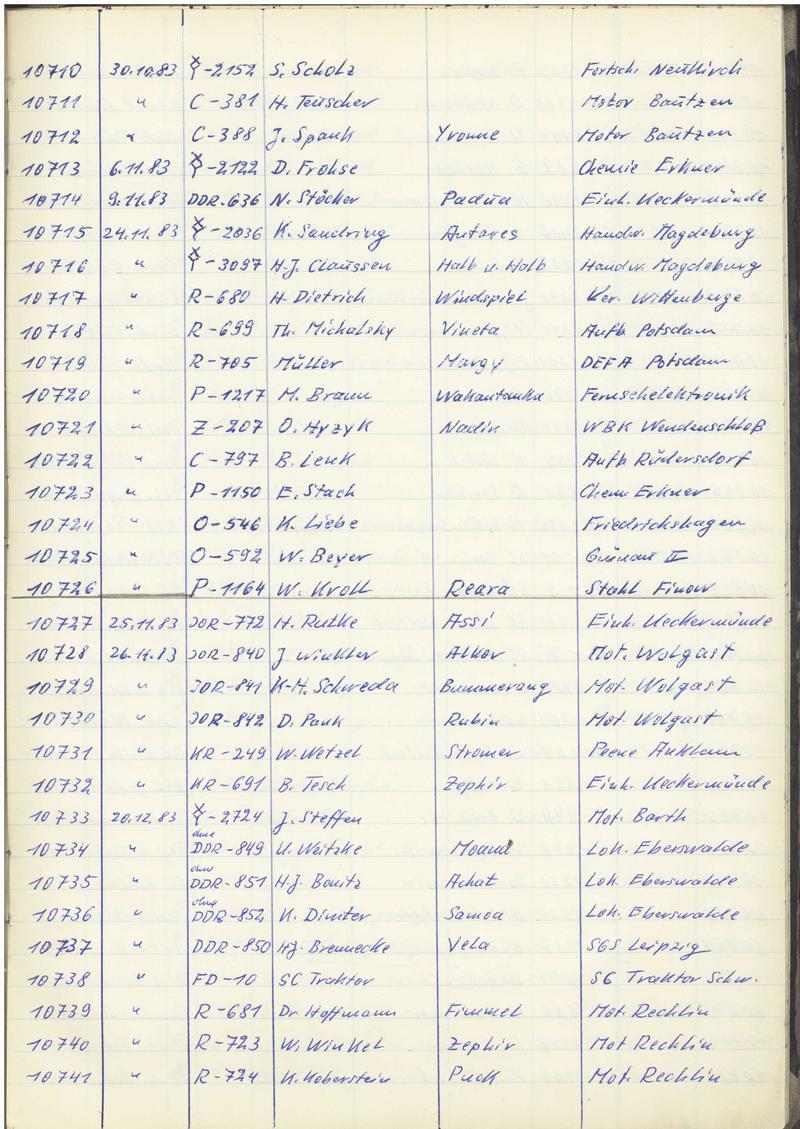 10710 30.10.83 -2152 S. Scholz Fortsch. Neukirch
10711 " C-381 H. Teuscher Motor Bautzen
10712 " C-388 J. Spank Yvonne Motor Bautzen
10713 6.11.83 -2122 D. Frohse Chemie Erkner
10714 9.11.83 DDR-636 N. Stöcker Padua Einh. Ueckermünde
10715 24.11.83 -2036 K. Sandring Antares Handw. Magdeburg
10716 " -3097 H.-J. Claussen Halb u. Halb Handw. Magdeburg
10717 " R-680 H. Dietrich Windspiel Ver. Wittenberge
10718 " R-699 Th. Michalsky Vineta Aufb. Potsdam
10719 " R-705 Müller Margy DEFA Potsdam
10720 " P-1217 M. Braun Wakantanka Fernsehelektronik
10721 " Z-207 O. Hyzyk Nadin WBK Wendenschloß
10722 " C-797 B. Lenk Aufb. Rüdersdorf
10723 " P-1150 E. Stach Chem. Erkner
10724 " O-546 K. Liebe Friedrichshagen
10725 " O-592 W. Beyer Grünau II
10726 " P-1164 W. Kroll Reara Stahl Finow
10727 25.11.83 JOR-772 H. Rutke Assi Einh. Ueckermünde
10728 26.11.83 JOR-840 J Winkler Alkor Mot. Wolgast
10729 " JOR-841 K-H. Schweda Bummerang Mot. Wolgast
10730 " JOR-842 D. Pank Rubin Mot. Wolgast
10731 " KR-249 W. Wetzel Stromer Peene Anklam
10732 " KR-691 B. Tesch Zephir Einh. Ueckermünde
10733 20.12.83 -2724 J. Steffen Mot. Barth
ohne
10734 " DDR-849 U. Weitzke Moana Lok. Eberswalde
ohne
10735 " DDR-851 H.J. Bonitz Achat Lok. Eberswalde
ohne
10736 " DDR-852 K. Dimter Samoa Lok. Eberswalde
10737 " DDR-850 H.J. Brennecke Vela SGS Leipzig
10738 " FD-10 SC Traktor SG Traktor Schw.
10739 " R-681 Dr Hoffmann Fimmel Mot. Rechlin
10740 " R-723 W. Winkel Zephir Mot Rechlin
10741 " R-724 K. Koberstein Puck Mot. Rechlin